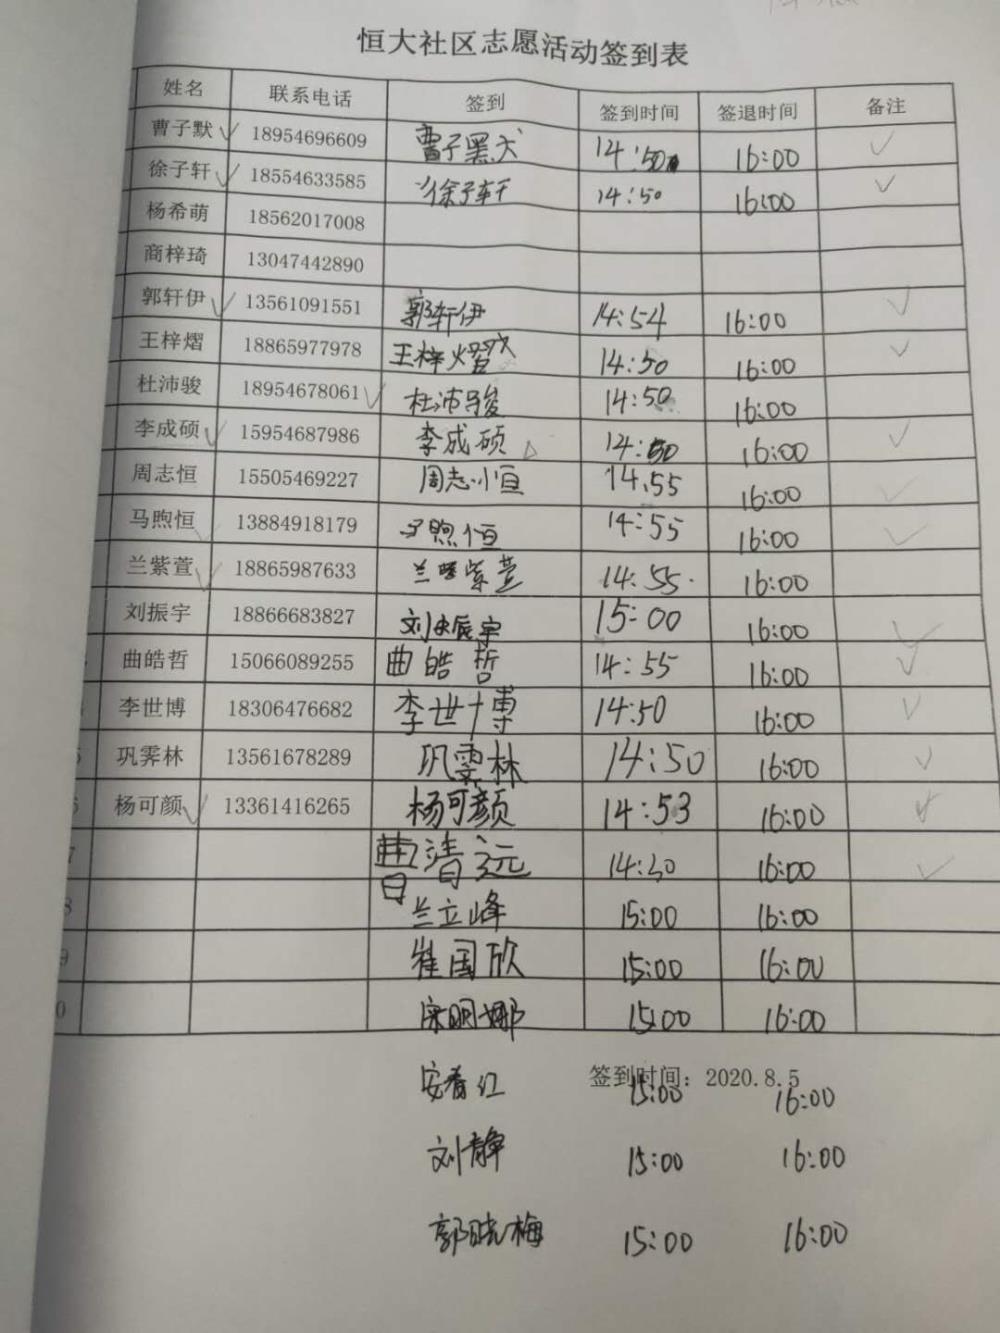 恒大社区志愿活动签到表
姓名 联系电话 签到 签到时间 签退时间 备注
曹子默 18954696609 曹子默 14:50 16:00
徐子轩 18554633585 徐子轩 14:50 16:00
杨希萌 18562017008
商梓琦 13047442890
郭轩伊 13561091551 郭轩伊 14:54 16:00
王梓熠 18865977978 王梓熠 14:50 16:00
杜沛骏 18954678061 杜沛骏 14:50 16:00
李成硕 15954687986 李成硕 14:50 16:00
周志恒 15505469227 周志恒 14.55 16:00
马煦恒 13884918179 马煦恒 14:55 16:00
兰紫萱 18865987633 兰紫萱 14:55. 16:00
刘振宇 18866683827 刘振宇 15:00 16:00
曲皓哲 15066089255 曲皓哲 14:55 16:00
李世博 18306476682 李世博 14:50 16:00
巩霁林 13561678289 巩霁林 14:50 16:00
杨可颜 13361416265 杨可颜 14:53 16:00
7 曹清远 16:00
8 兰立峰 15:00 16:00
9 崔国欣 15:00 16:00
0 宋明娜 15:00 16:00
签到时间：2020.8.5
安春红 15:00 16:00
刘静 15:00 16:00
郭晓梅 15:00 16:00